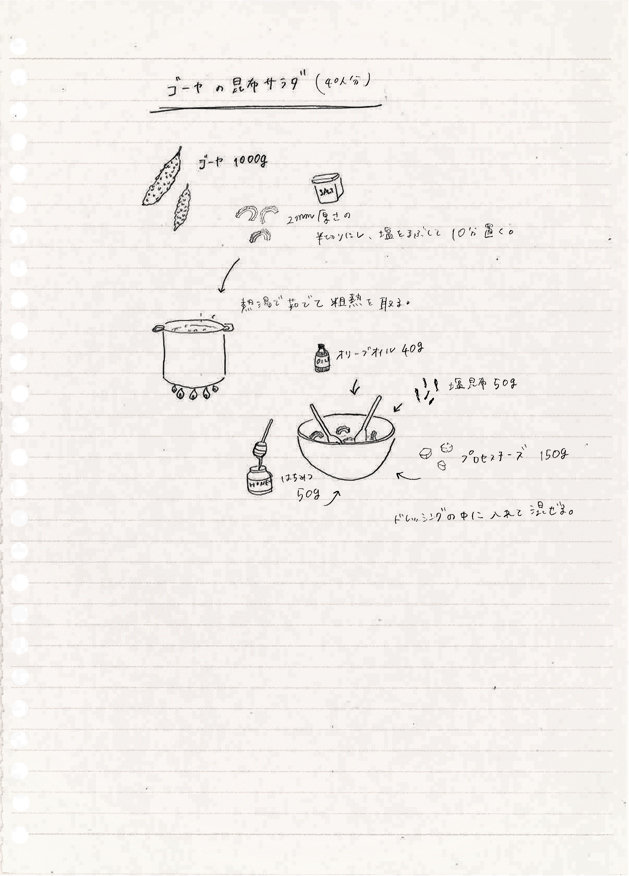 ゴーヤの昆布サラダ(40人分)
ゴーヤ 1000g
SALT
2mm厚さの
半切りにし、塩をまぶして10分置く。
熱湯で茹でて粗熱を取る。
OIL
オリーブオイル 40g
塩昆布 50g
プロセスチーズ 150g
HONEY
はちみつ
50g
ドレッシングの中に入れて混ぜる。